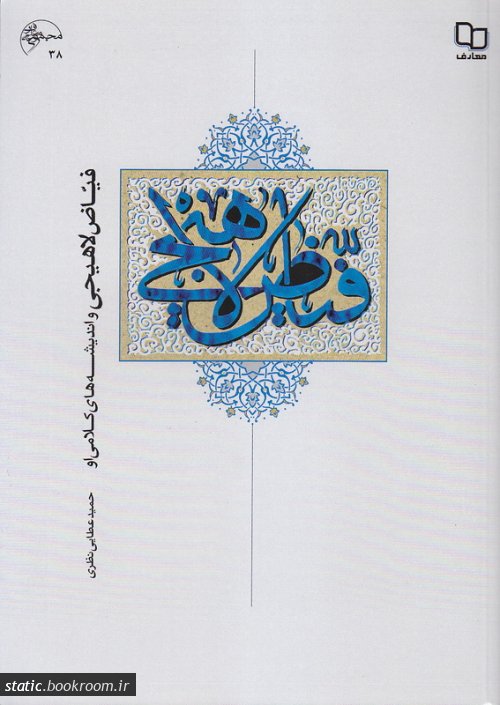 معارف
۳۸
فیّاض لاهیجی
فیّاض لاهیجی و اندیشه‌های کلامی او
حمید عطایی نظری
static.bookroom.ir